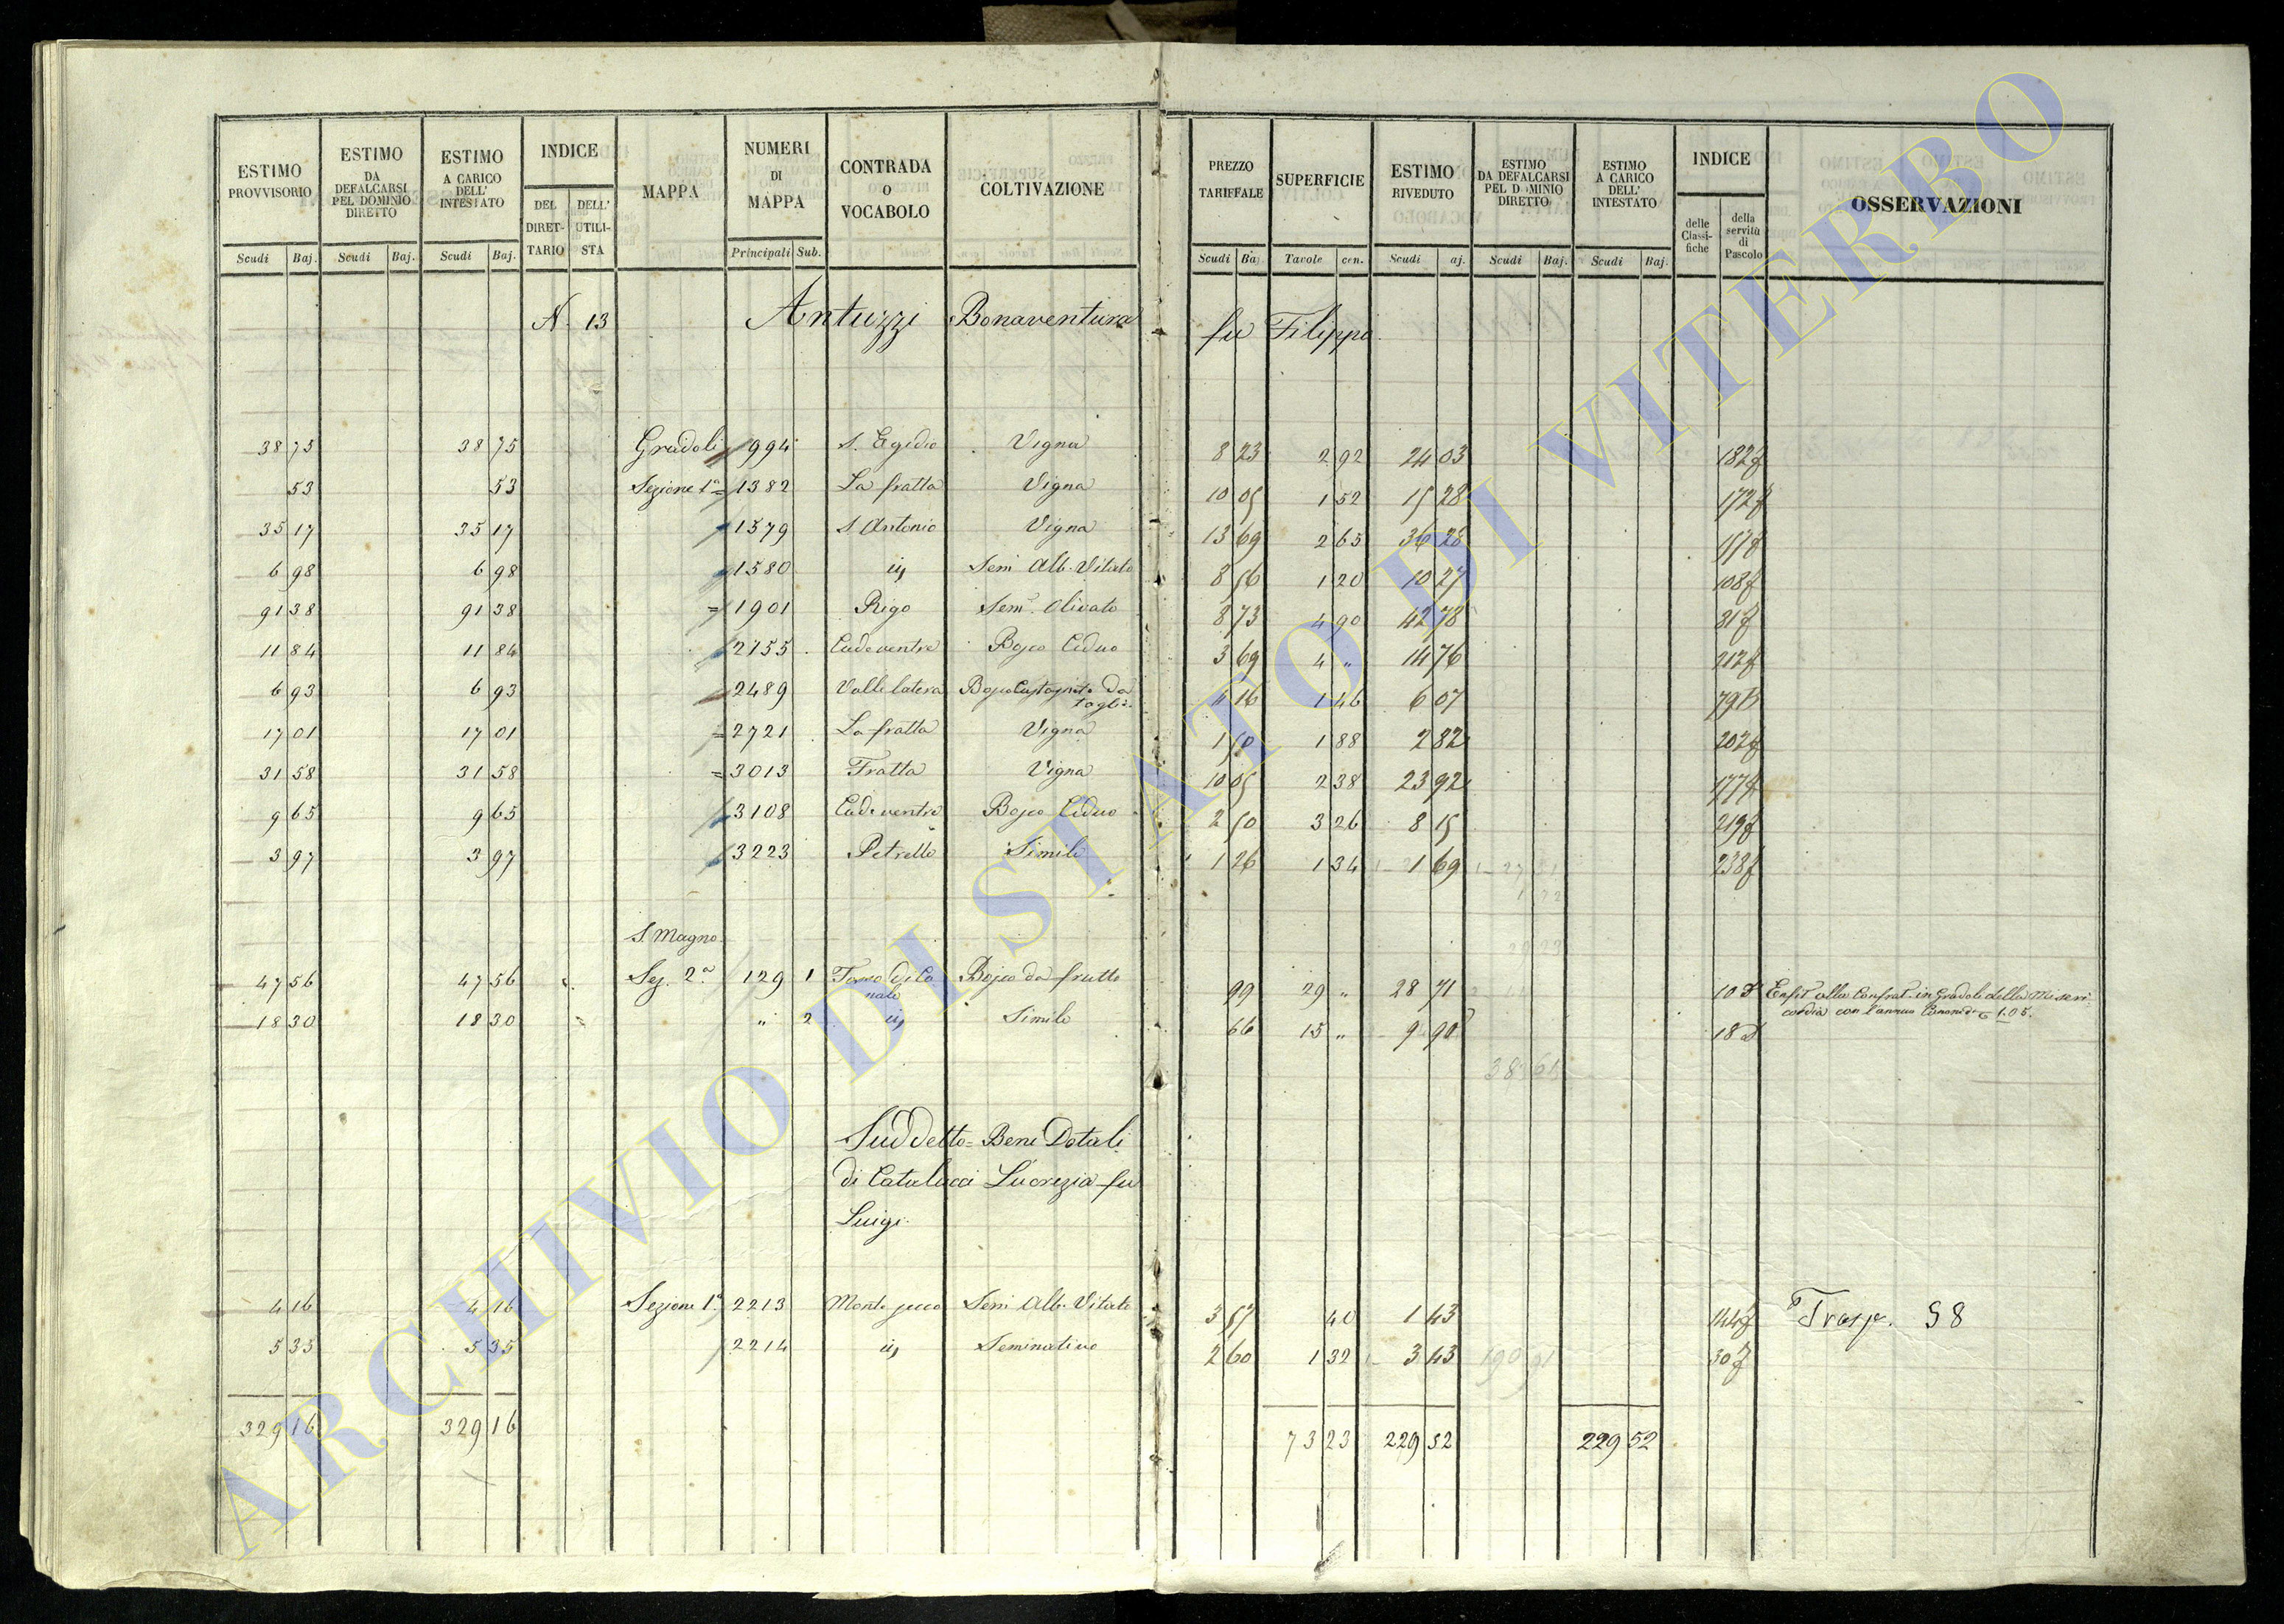 ESTIMO PROVVISORIO | ESTIMO DA DEFALCARSI PEL DOMINIO DIRETTO | ESTIMO A CARICO DELL' INTESTATO | INDICE | MAPPA | NUMERI DI MAPPA | CONTRADA O VOCABOLO | COLTIVAZIONE | PREZZO TARIFFALE | SUPERFICIE | ESTIMO RIVEDUTO | ESTIMO DA DEFALCARSI PEL DOMINIO DIRETTO | ESTIMO A CARICO DELL' INTESTATO | INDICE | OSSERVAZIONI
DEL DIRETTARIO | DELL' UTILISTA | delle Classifiche | della servitù di Pascolo
Scudi | Baj. | Scudi | Baj. | Scudi | Baj. | Principali | Sub. | Scudi | Ba | Tavole | cen. | Scudi | aj. | Scudi | Baj. | Scudi | Baj.
N. 13 Antuzzi Bonaventura fu Filippo
38 75 | 38 75 | Gradoli | 994 | S. Egidio | Vigna | 8 23 | 2 92 | 24 03 | 182
53 | 53 | Sezione 1ª | 1382 | La fratta | Vigna | 10 05 | 1 52 | 15 28 | 172
35 17 | 35 17 | 1579 | S. Antonio | Vigna | 13 69 | 2 65 | 36 28
6 98 | 6 98 | 1580 | id | Sem Alb. Vitato | 8 56 | 1 20 | 10 27 | 108
91 38 | 91 38 | 1901 | Rigo | Sem. Olivato | 8 73 | 4 90 | 42 78 | 31
11 84 | 11 84 | 2155 | Cadeventre | Bosco Ceduo | 3 69 | 4 " | 14 76 | 212
6 93 | 6 93 | 2489 | Valle latera | Bosco Castagneto da taglio | 4 16 | 1 46 | 6 07 | 79
17 01 | 17 01 | 2721 | La fratta | Vigna | 1 50 | 1 88 | 2 82 | 202
31 58 | 31 58 | 3013 | Fratta | Vigna | 10 05 | 2 38 | 23 92 | 177
9 65 | 9 65 | 3108 | Cadeventre | Bosco Ceduo | 2 50 | 3 26 | 8 15 | 219
3 97 | 3 97 | 3223 | Petrelle | Simile | 1 26 | 1 34 | 1 69 | 238
S. Magno
47 56 | 47 56 | Sez. 2ª | 129 | 1 | Bosco da frutto | 99 | 29 " | 28 71 | 10 | Enfit alla Confrat. in Gradoli della Miseri
cordia con l'annuo Canone di 1.05.
18 30 | 18 30 | " | 2 | id | Simile | 66 | 15 " | 9 90 | 18
38 61
Suddetto = Beni Dotali
di Catalucci Lucrezia fu
Luigi
4 16 | 4 16 | Sezione 1ª | 2213 | Monte secco | Sem Alb. Vitato | 3 57 | 40 | 1 43 | 144 | Trasp. 58
5 35 | 5 35 | 2214 | id | Seminativo | 2 60 | 1 32 | 3 43 | 190 91 | 30
329 16 | 329 16 | 73 23 | 229 52 | 229 52
ARCHIVIO DI STATO DI VITERBO